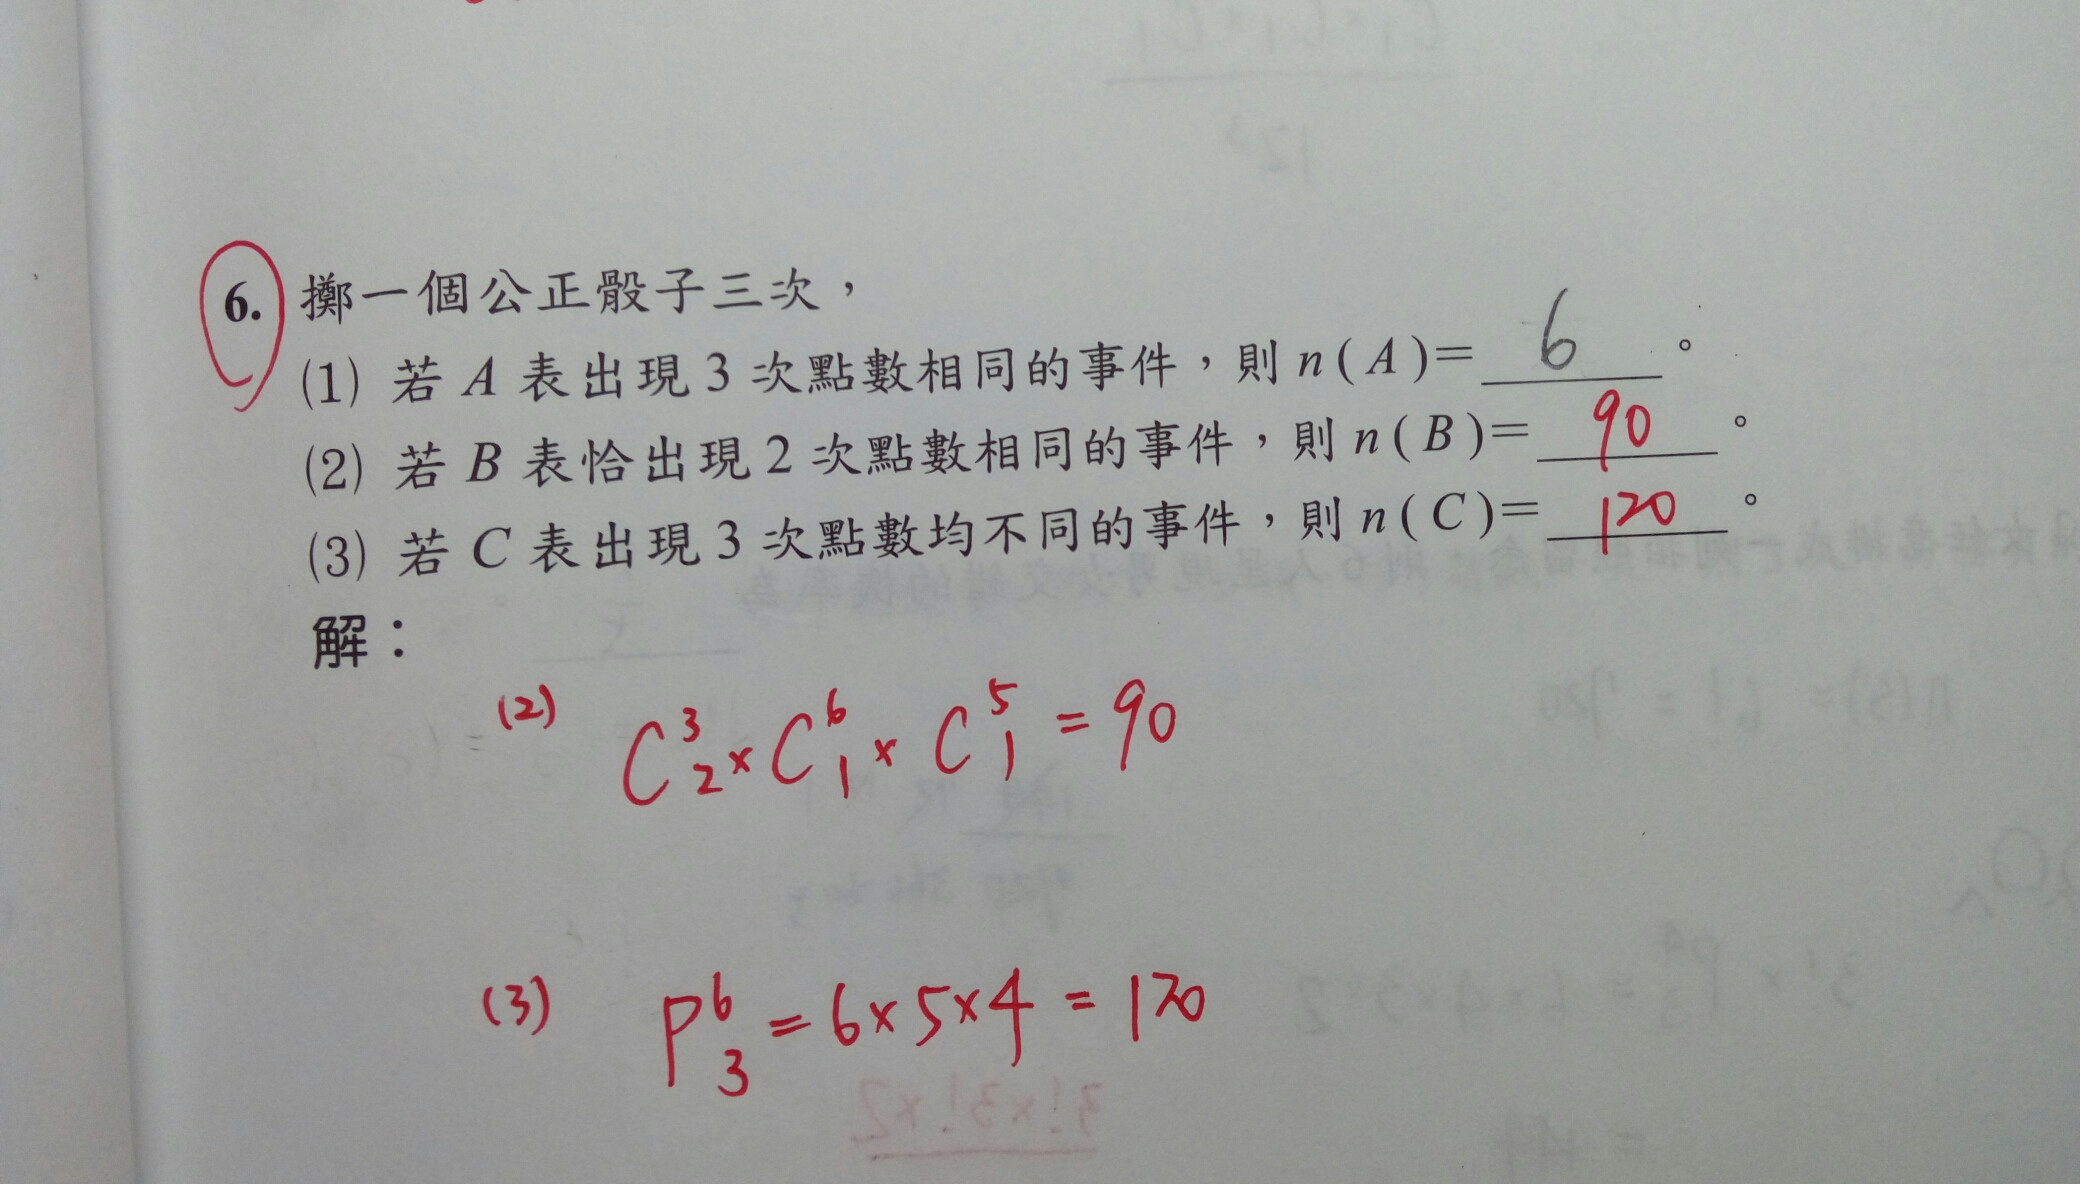 6. 擲一個公正骰子三次，
(1) 若 A 表出現 3 次點數相同的事件，則 n ( A )= 6 。
(2) 若 B 表恰出現 2 次點數相同的事件，則 n ( B )= 90 。
(3) 若 C 表出現 3 次點數均不同的事件，則 n ( C )= 120 。
解：
(2) C³₂ × C⁶₁ × C⁵₁ = 90
(3) P⁶₃ = 6×5×4 = 120